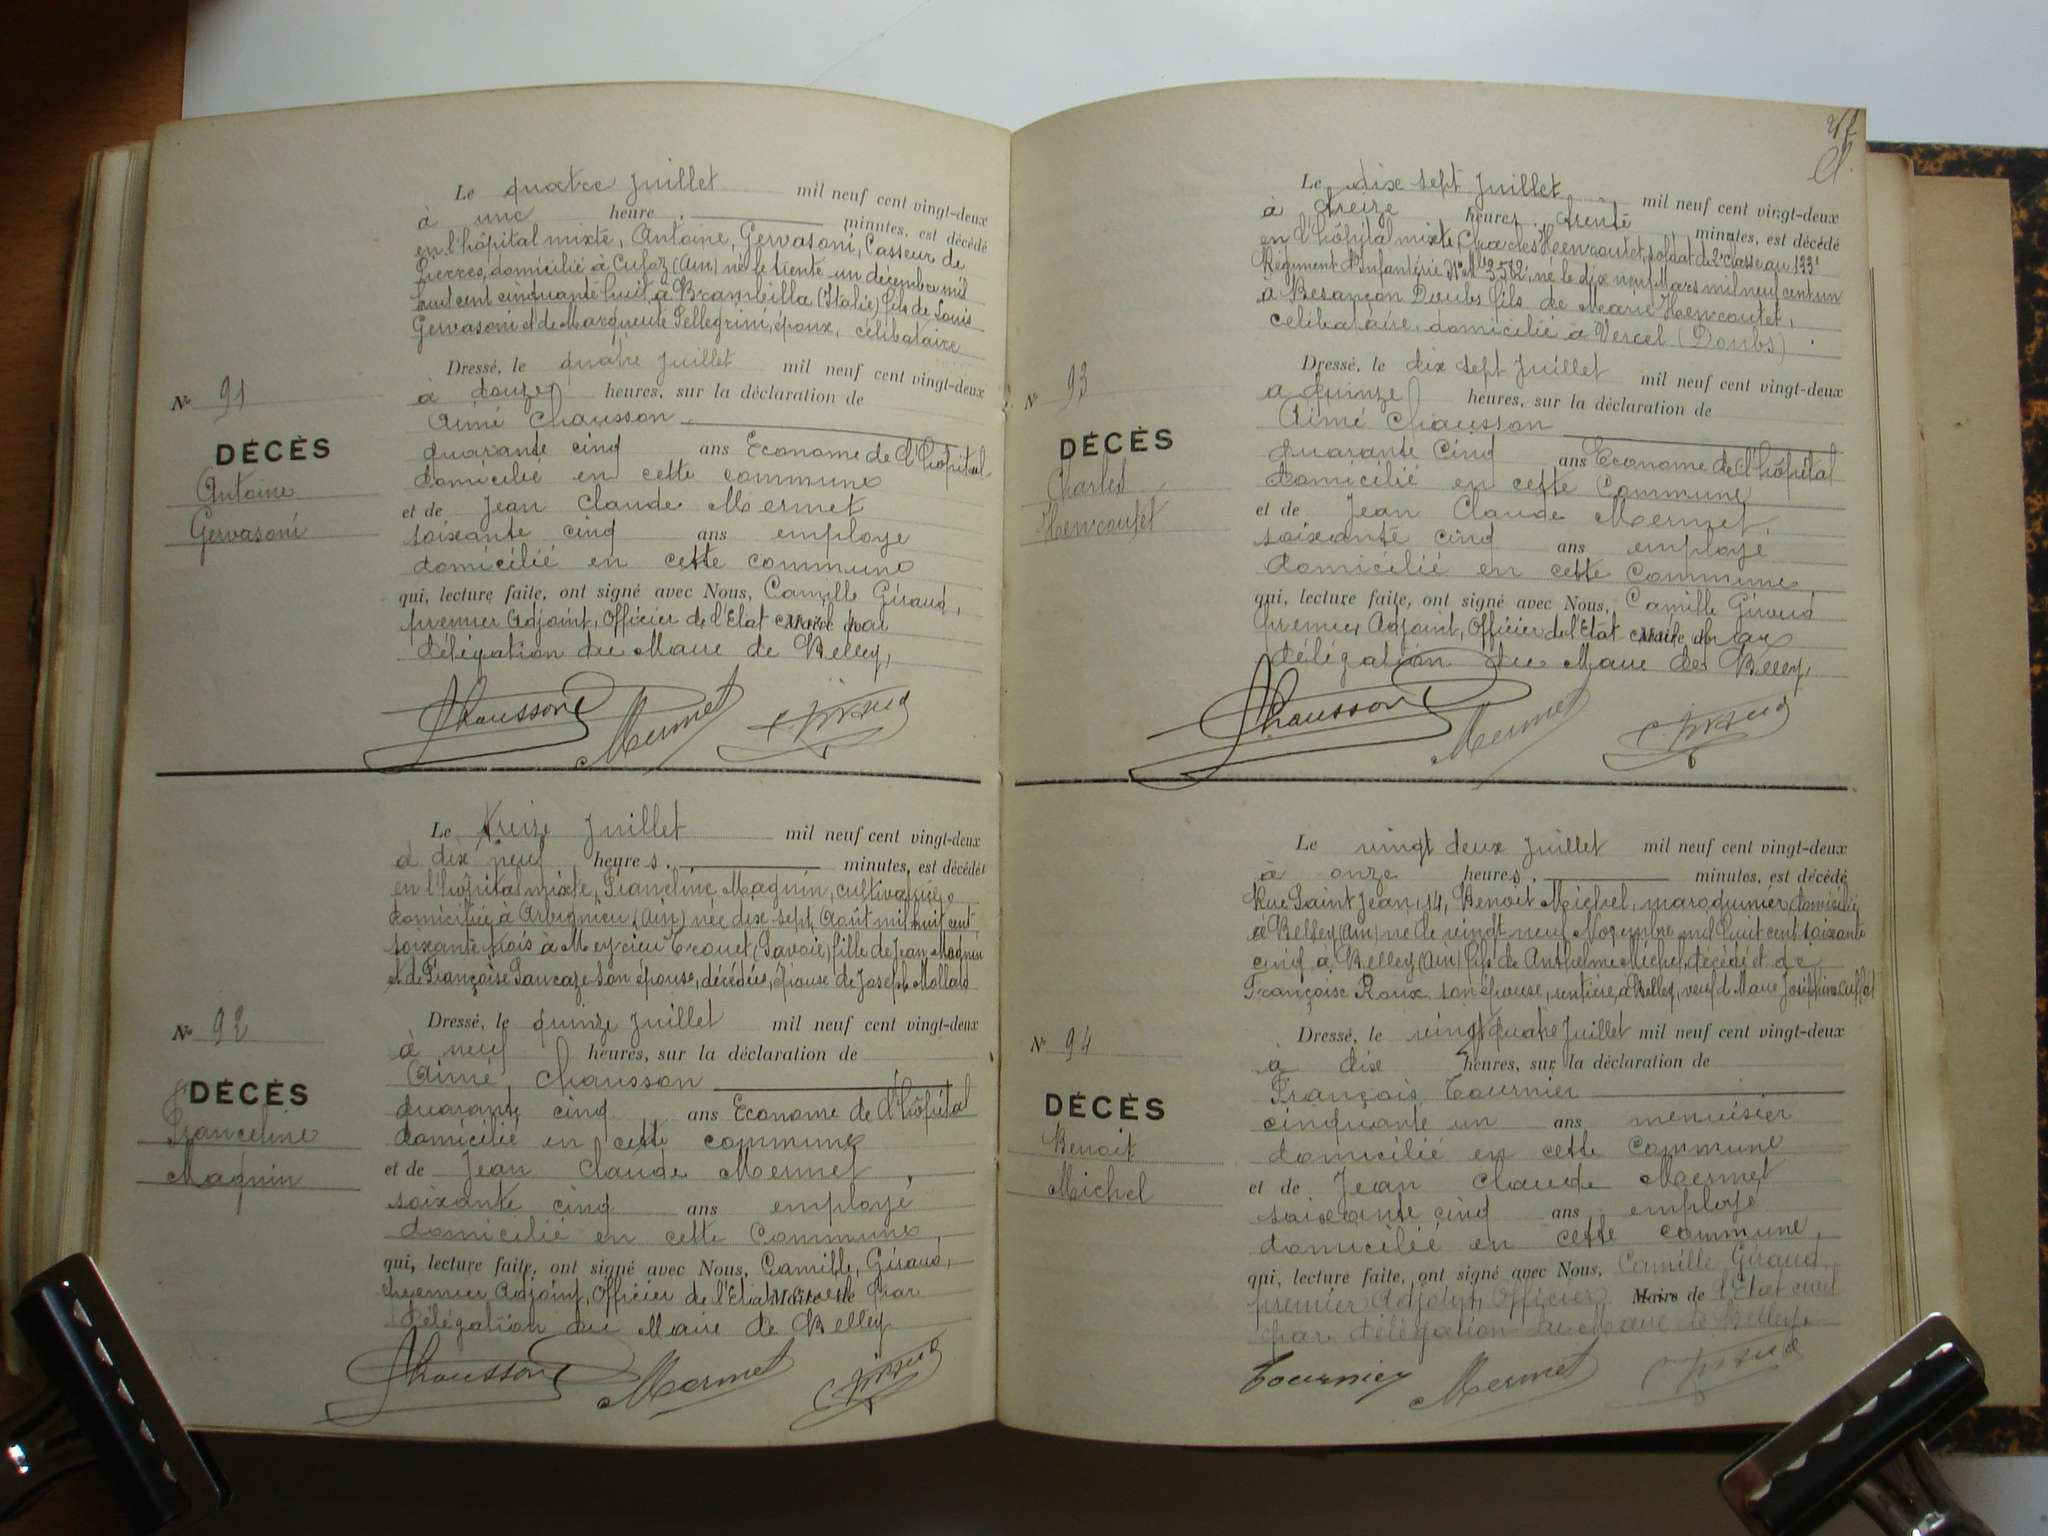 Le quatre Juillet mil neuf cent vingt-deux
à une heure, minutes, est décédé
en l'hôpital mixte, Antoine, Gervasoni, Casseur de
Pierres, domicilié à Cufoz (Ain) né le trente un décembre mil
huit cent cinquante huit à Brambilla (Italie) fils de Louis
Gervasoni et de Marguerite Pellegrini, époux, célibataire
Dressé, le quatre Juillet mil neuf cent vingt-deux
à douze heures, sur la déclaration de
Aimé Chausson
quarante cinq ans Econome de l'hôpital
domicilié en cette commune
et de Jean Claude Mermet
soixante cinq ans employé
domicilié en cette commune
qui, lecture faite, ont signé avec Nous, Camille Giraud,
premier Adjoint, Officier de l'Etat Maire par
délégation du Maire de Belley,
Nº 91
DÉCÈS
Antoine
Gervasoni
Chausson Mermet C. Giraud
Le treize Juillet mil neuf cent vingt-deux
à dix neuf heures, minutes, est décédée
en l'hôpital mixte, Franceline Magnin, cultivatrice,
domiciliée à Arbignieu (Ain) née dix sept Août mil huit cent
soixante trois à Meyrieu Trouet (Savoie) fille de Jean Magnin
et de Françoise son épouse, décédés, épouse de Joseph Mollard
Dressé, le quinze Juillet mil neuf cent vingt-deux
à neuf heures, sur la déclaration de
Aimé Chausson
quarante cinq ans Econome de l'hôpital
domicilié en cette commune
et de Jean Claude Mermet,
soixante cinq ans employé
domicilié en cette Commune,
qui, lecture faite, ont signé avec Nous, Camille, Giraud,
premier Adjoint, Officier de l'Etat Maire par
délégation du Maire de Belley
Nº 92
DÉCÈS
Franceline
Magnin
Chausson Mermet C. Giraud
Le dix sept Juillet mil neuf cent vingt-deux
à treize heures trente minutes, est décédé
en l'hôpital mixte, Charles Hencoutet, soldat de 2e classe au 133e
Régiment d'Infanterie Nº Mle 3562, né le dix neuf Mars mil neuf cent un
à Besançon Doubs fils de Marie Hencoutet,
célibataire, domicilié à Vercel (Doubs).
Dressé, le dix sept Juillet mil neuf cent vingt-deux
à quinze heures, sur la déclaration de
Aimé Chausson
quarante Cinq ans Econome de l'hôpital
domicilié en cette Commune
et de Jean Claude Mermet,
soixante cinq ans employé
domicilié en cette Commune
qui, lecture faite, ont signé avec Nous, Camille Giraud
premier Adjoint, Officier de l'Etat Maire par
délégation du Maire de Belley,
Nº 93
DÉCÈS
Charles
Hencoutet
Chausson Mermet C. Giraud
Le vingt deux Juillet mil neuf cent vingt-deux
à onze heures, minutes, est décédé
Rue Saint Jean, 14, Benoit Michel, maroquinier, domicilié
à Belley (Ain) né le vingt neuf Novembre mil huit cent soixante
cinq à Belley (Ain) fils de Anthelme Michel, décédé et de
Françoise Roux son épouse, rentière, à Belley, veuf de Marie Joséphine
Dressé, le vingt quatre Juillet mil neuf cent vingt-deux
à dix heures, sur la déclaration de
François Tournier
cinquante un ans menuisier
domicilié en cette Commune
et de Jean Claude Mermet
soixante cinq ans employé
domicilié en cette commune,
qui, lecture faite, ont signé avec Nous, Camille Giraud,
premier Adjoint, Officier Maire de l'Etat civil
par délégation du Maire de Belley,
Nº 94
DÉCÈS
Benoit
Michel
Tournier Mermet C. Giraud